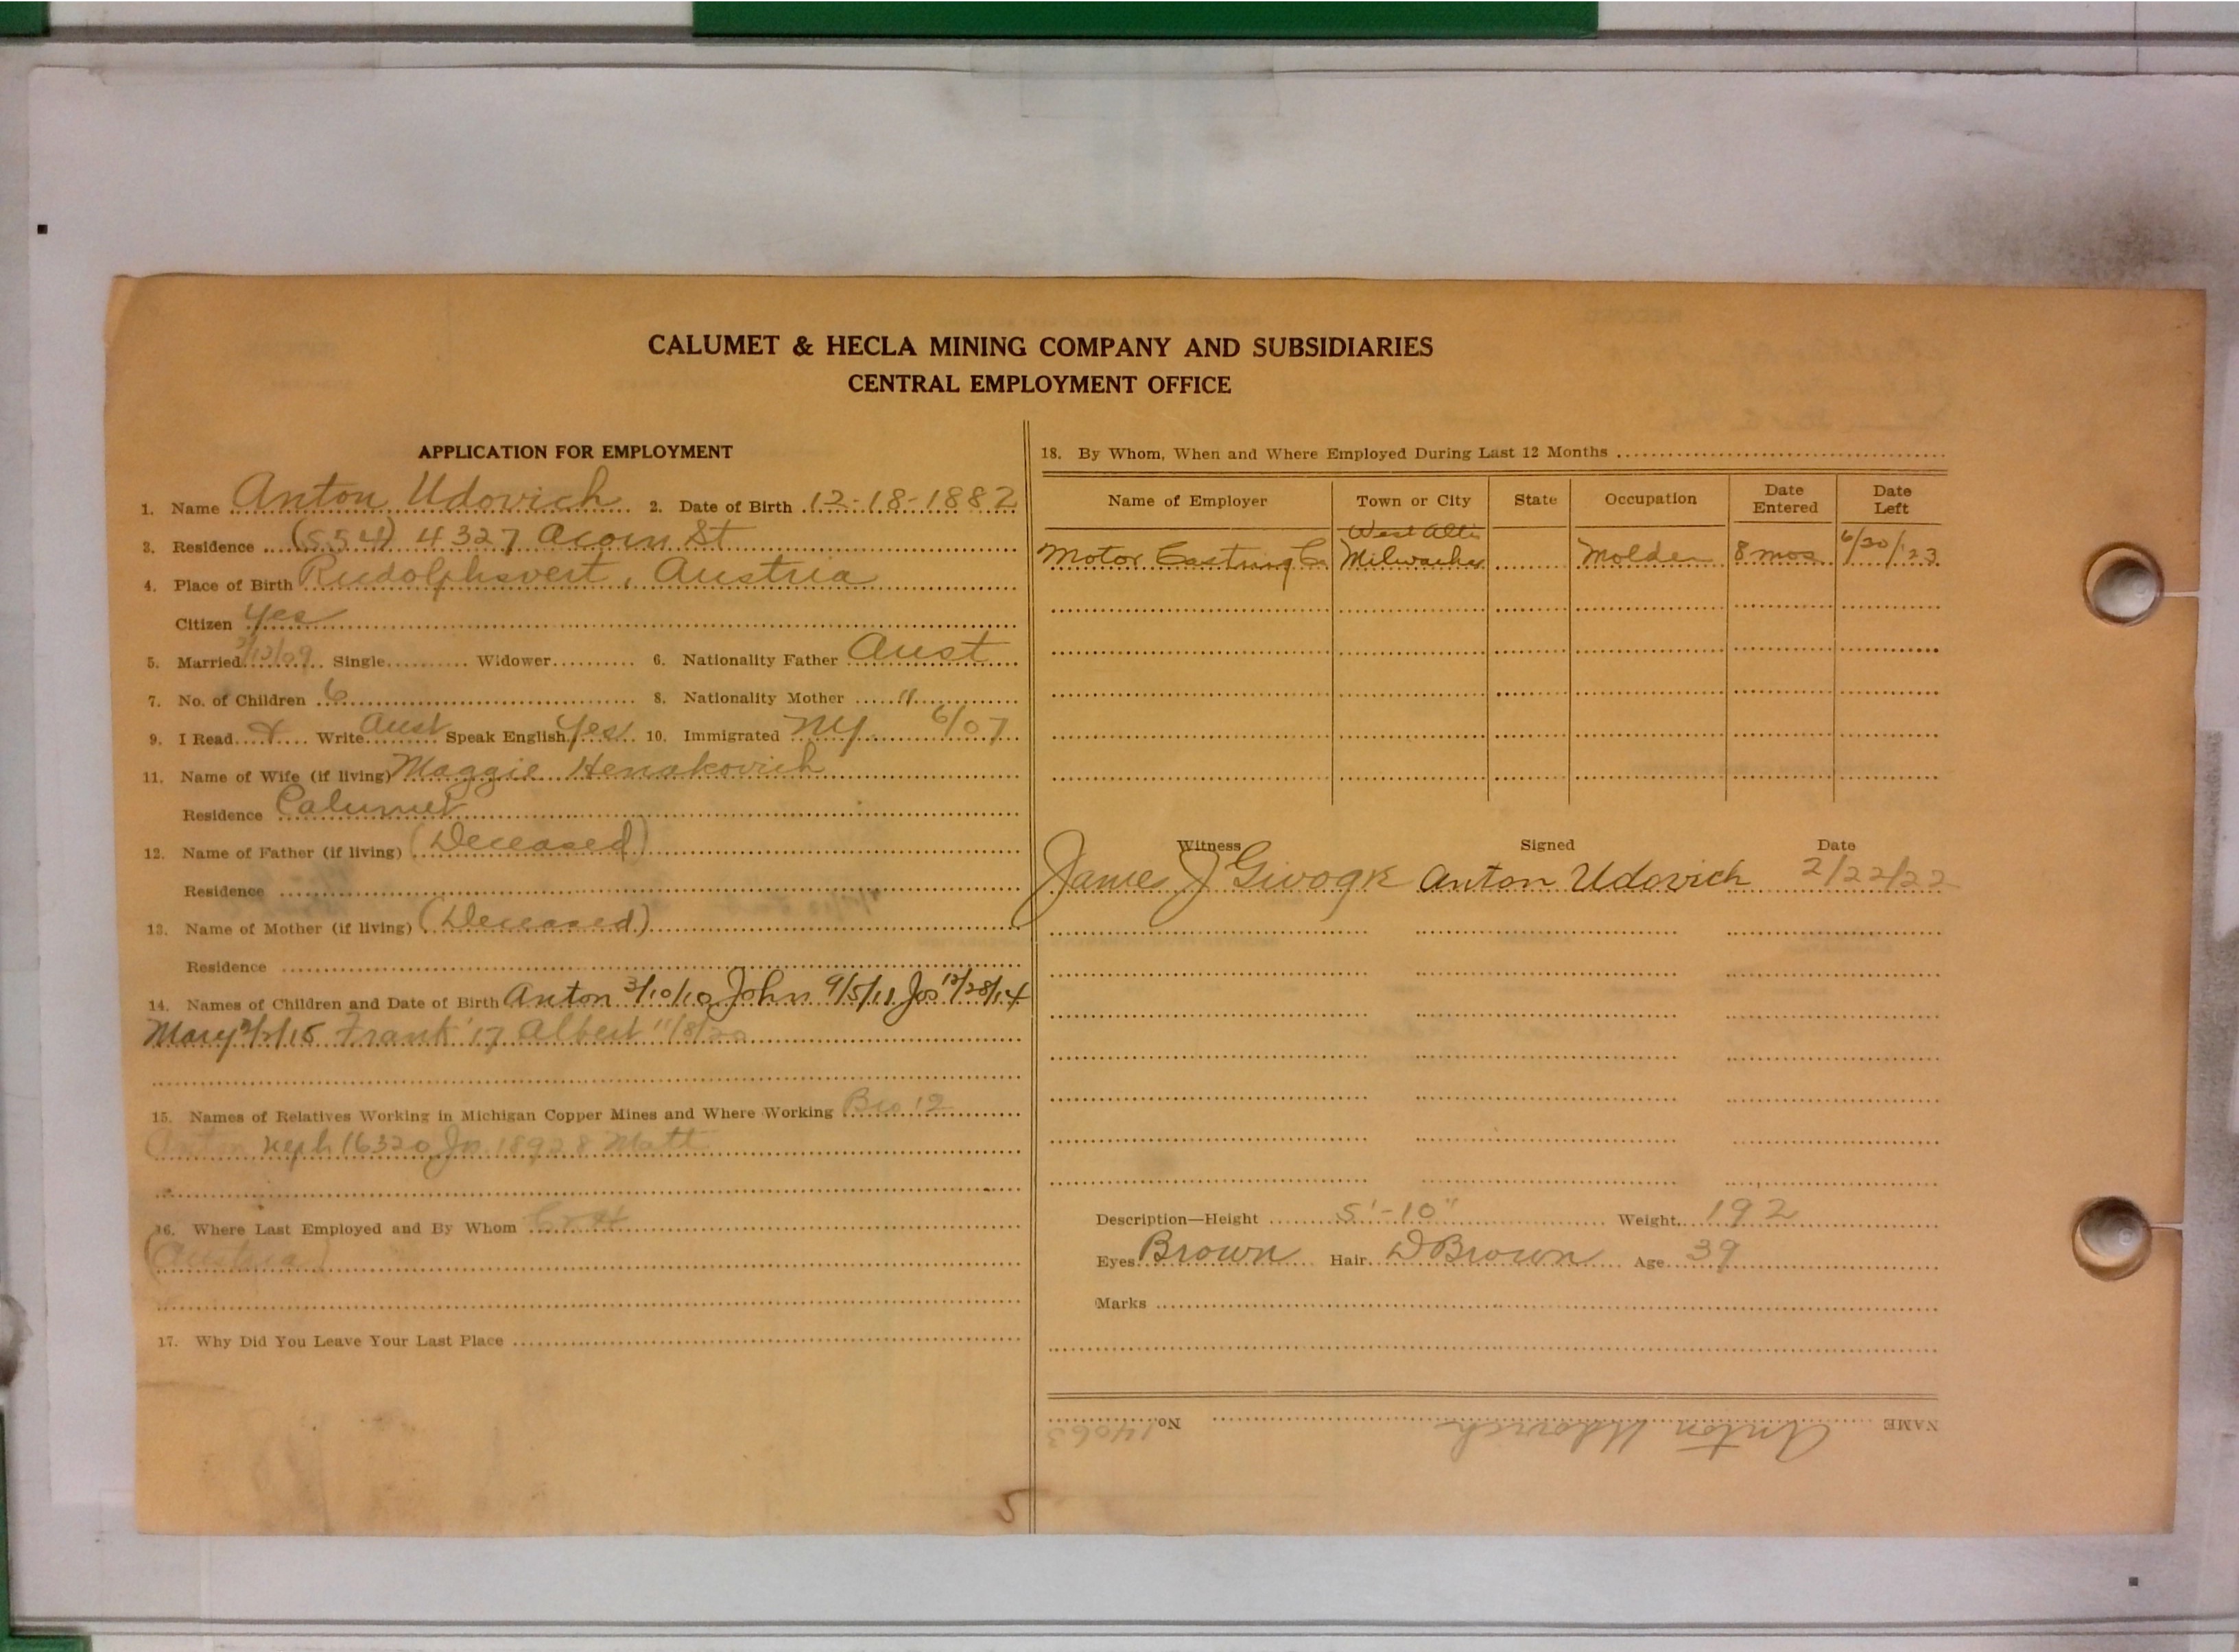 CALUMET & HECLA MINING COMPANY AND SUBSIDIARIES
CENTRAL EMPLOYMENT OFFICE
APPLICATION FOR EMPLOYMENT
1. Name Anton Udovich 2. Date of Birth 12-18-1882
3. Residence (554) 4327 Acorn St
4. Place of Birth Rudolphsvert, Austria
Citizen Yes
5. Married 3/13/09 Single Widower 6. Nationality Father Aust
7. No. of Children 6 8. Nationality Mother "
9. I Read & Write Aust Speak English Yes 10. Immigrated NY 6/07
11. Name of Wife (if living) Maggie
Residence Calumet
12. Name of Father (if living) (Deceased)
Residence
13. Name of Mother (if living) (Deceased)
Residence
14. Names of Children and Date of Birth Anton 3/10/10 John 9/5/11 Jos 12/28/14
Mary Frank '17 Albert 11/8/20
15. Names of Relatives Working in Michigan Copper Mines and Where Working Bro 12
Anton Neph 16320 Jos 18928 Matt
16. Where Last Employed and By Whom
(Austria)
17. Why Did You Leave Your Last Place
18. By Whom, When and Where Employed During Last 12 Months
Name of Employer Town or City State Occupation Date Entered Date Left
West Allis
Motor Casting Co Milwaukee Molder 8 mos 6/30/23
Witness Signed Date
James J Anton Udovich 2/22/22
Description—Height 5'-10" Weight 192
Eyes Brown Hair D Brown Age 39
Marks
NAME Anton Udovich No. 14063
5